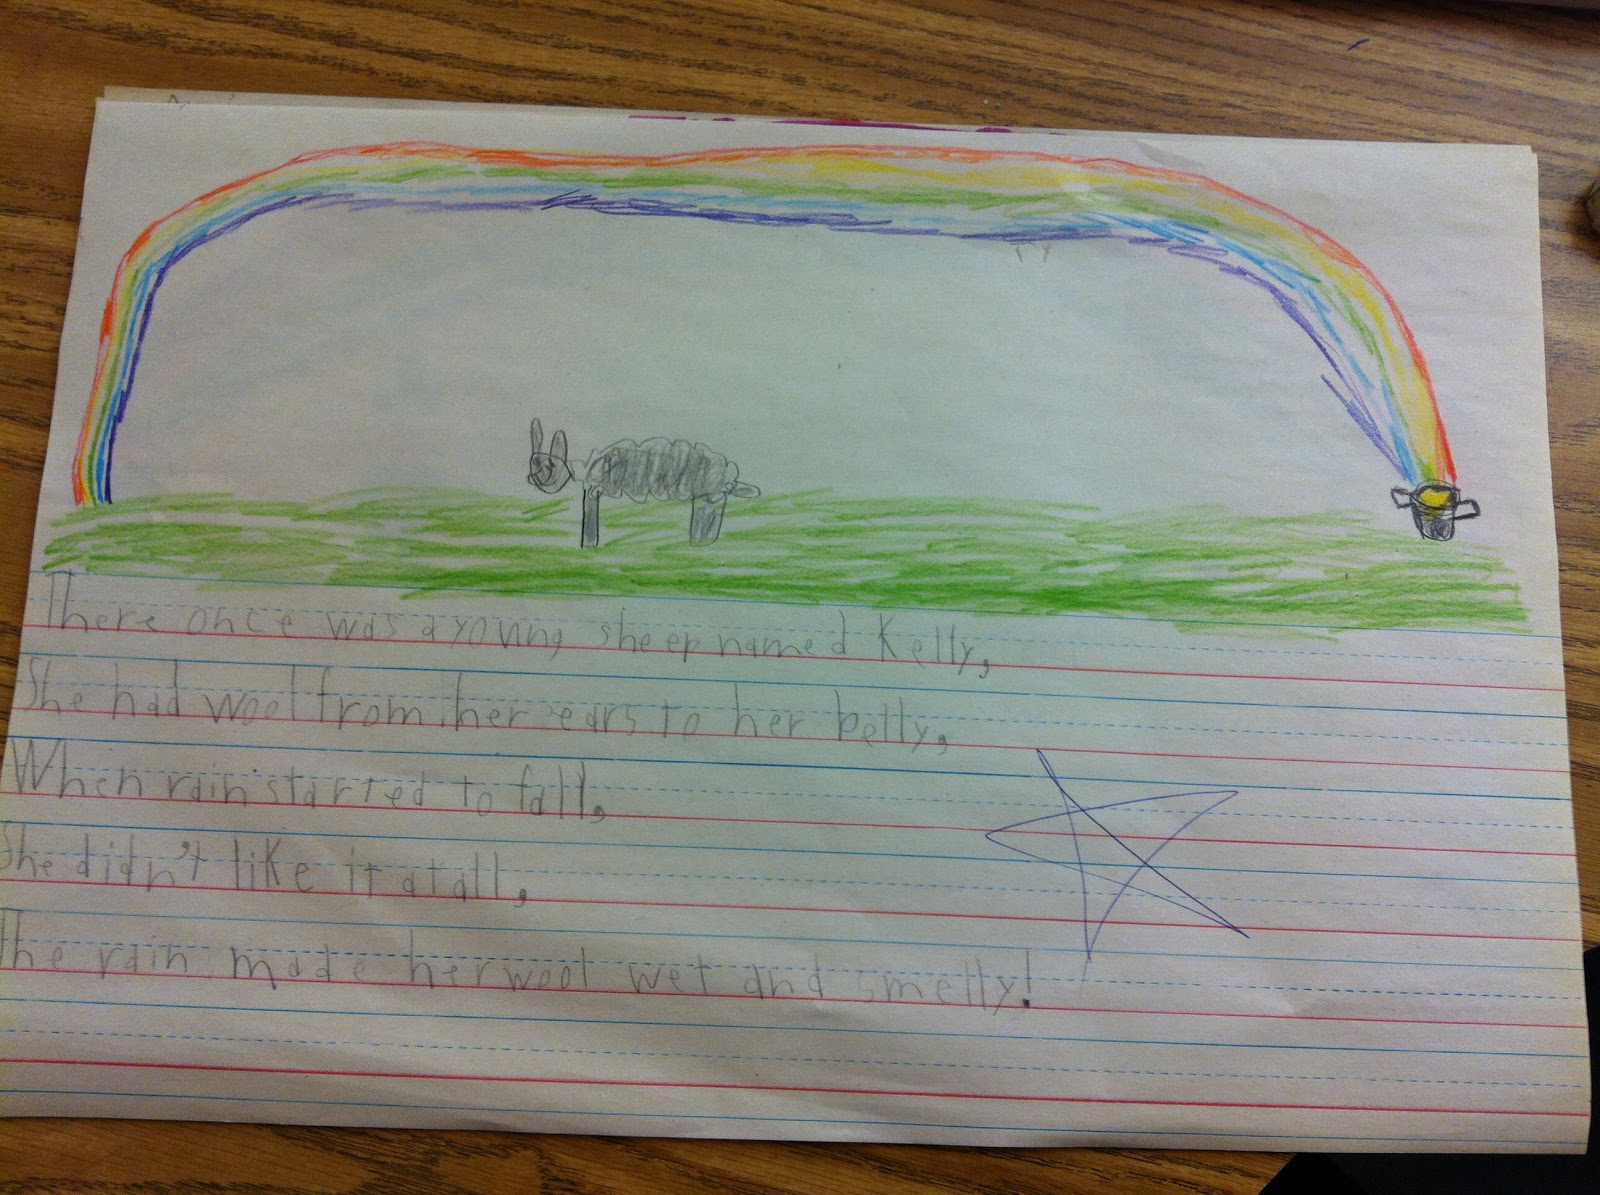 There once was a young sheep named Kelly,
She had wool from her ears to her belly,
When rain started to fall,
She didn't like it at all,
The rain made her wool wet and smelly!